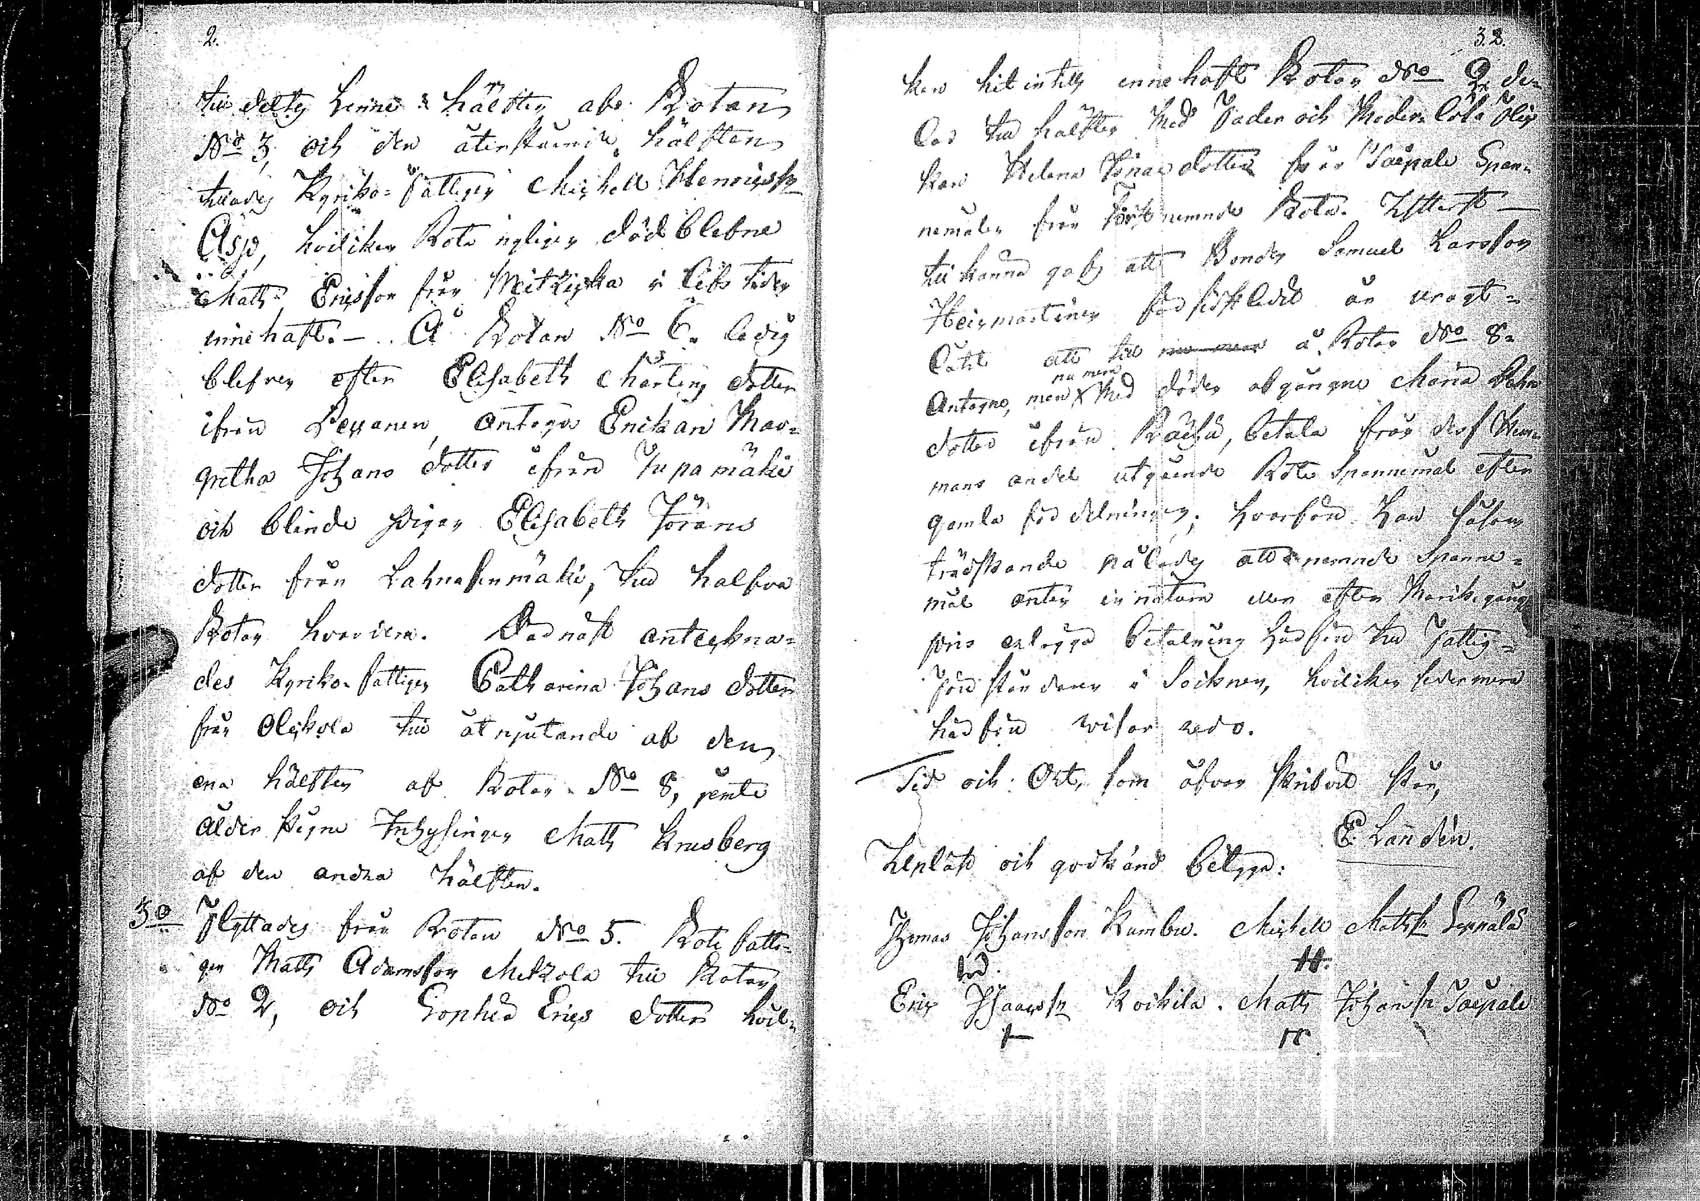 2.
till delty henne hälften af Rotan
No 3, och den återstående hälften
Kyrko-fattigen Michell Henricss:n
Asp, hvilken Rote nyligen död blefne
Matts Ericsson från i lifs tiden
innehaft. — Å Rotan No 6. ledig
blefven efter Elisabeth Mårtens dotter
ifrån antogs Enkan Mar-
gretha Johans dotter ifrån Jupamäki
och blinde pigan Elisabeth Jörans
dotter från Lahnasenmäki, till halfva
Rotan hvardera. Dernäst anteckna-
des Kyrko-fattigen Catharina Johans dotter
från till åtnjutande af den
ena hälften af Rotan No 8, jemte
ålderstigne Inhysingen Matts Krusberg
af den andra hälften.
3o Flyttades från Rotan No 5. Rote fatti-
gen Matts Adamsson Mekkola till Rotan
No 2, och Sophia Erics dotter hvil-
3.
ken hit intills innehaft Rotan No 2, de-
las till hälften med Fader och Moderlösa flic-
kan Helena dotter från Saepala Span-
nemålen från förstnemnde Rota. Ytterst —
tillkänna gafs att Bonden Samuel Larsson
Heinmartinen förfiskeladt är uragt-
låtit att till å Rotan No 8-
nu mera
Antagne, men med döden afgångne Maria
dotter ifrån betala från dess Hem-
mans andel utgående Rote Spannemål efter
gamla fördelningen; hvarföre han såsom
tredskande ålades att nemnde Spanne-
mål anten in natura eller efter Markegångs
pris erlägga betalning härföre till Fattig-
Föreståndaren i Socknen, hvilken sedermera
härföre wisar redo.
Tid och Ort, som ofvan skrifvit står,
E. Landén.
Upläst och godkänd betyga:
Thomas Johansson Kumbu. Michell Matss:n Seppälä
Eric Isaacss:n Koikila. Matts Johanss:n Saepala